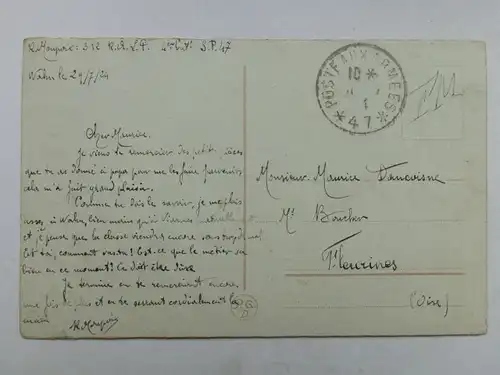 S.P. 47
Wahn le 29/7/24
Cher Maurice.
Je viens te remercier des petites pièces
que tu as donné à papa pour me les faire parvenir
cela m'a fait grand plaisir.
Comme tu dois le savoir, je me plais
assez à Wahn, bien moins qu'à
et je pense que la classe viendra encore sans trop de mal
et toi, comment vas tu? Est-ce que le métier va
bien en ce moment? Ca doit être dur
Je termine en te remerciant encore
une fois de plus et en te serrant cordialement la
main
POSTE AUX ARMEES
10 *
1
* 47 *
FM
Monsieur Maurice
Md Boucher
Fleurines
(Oise)